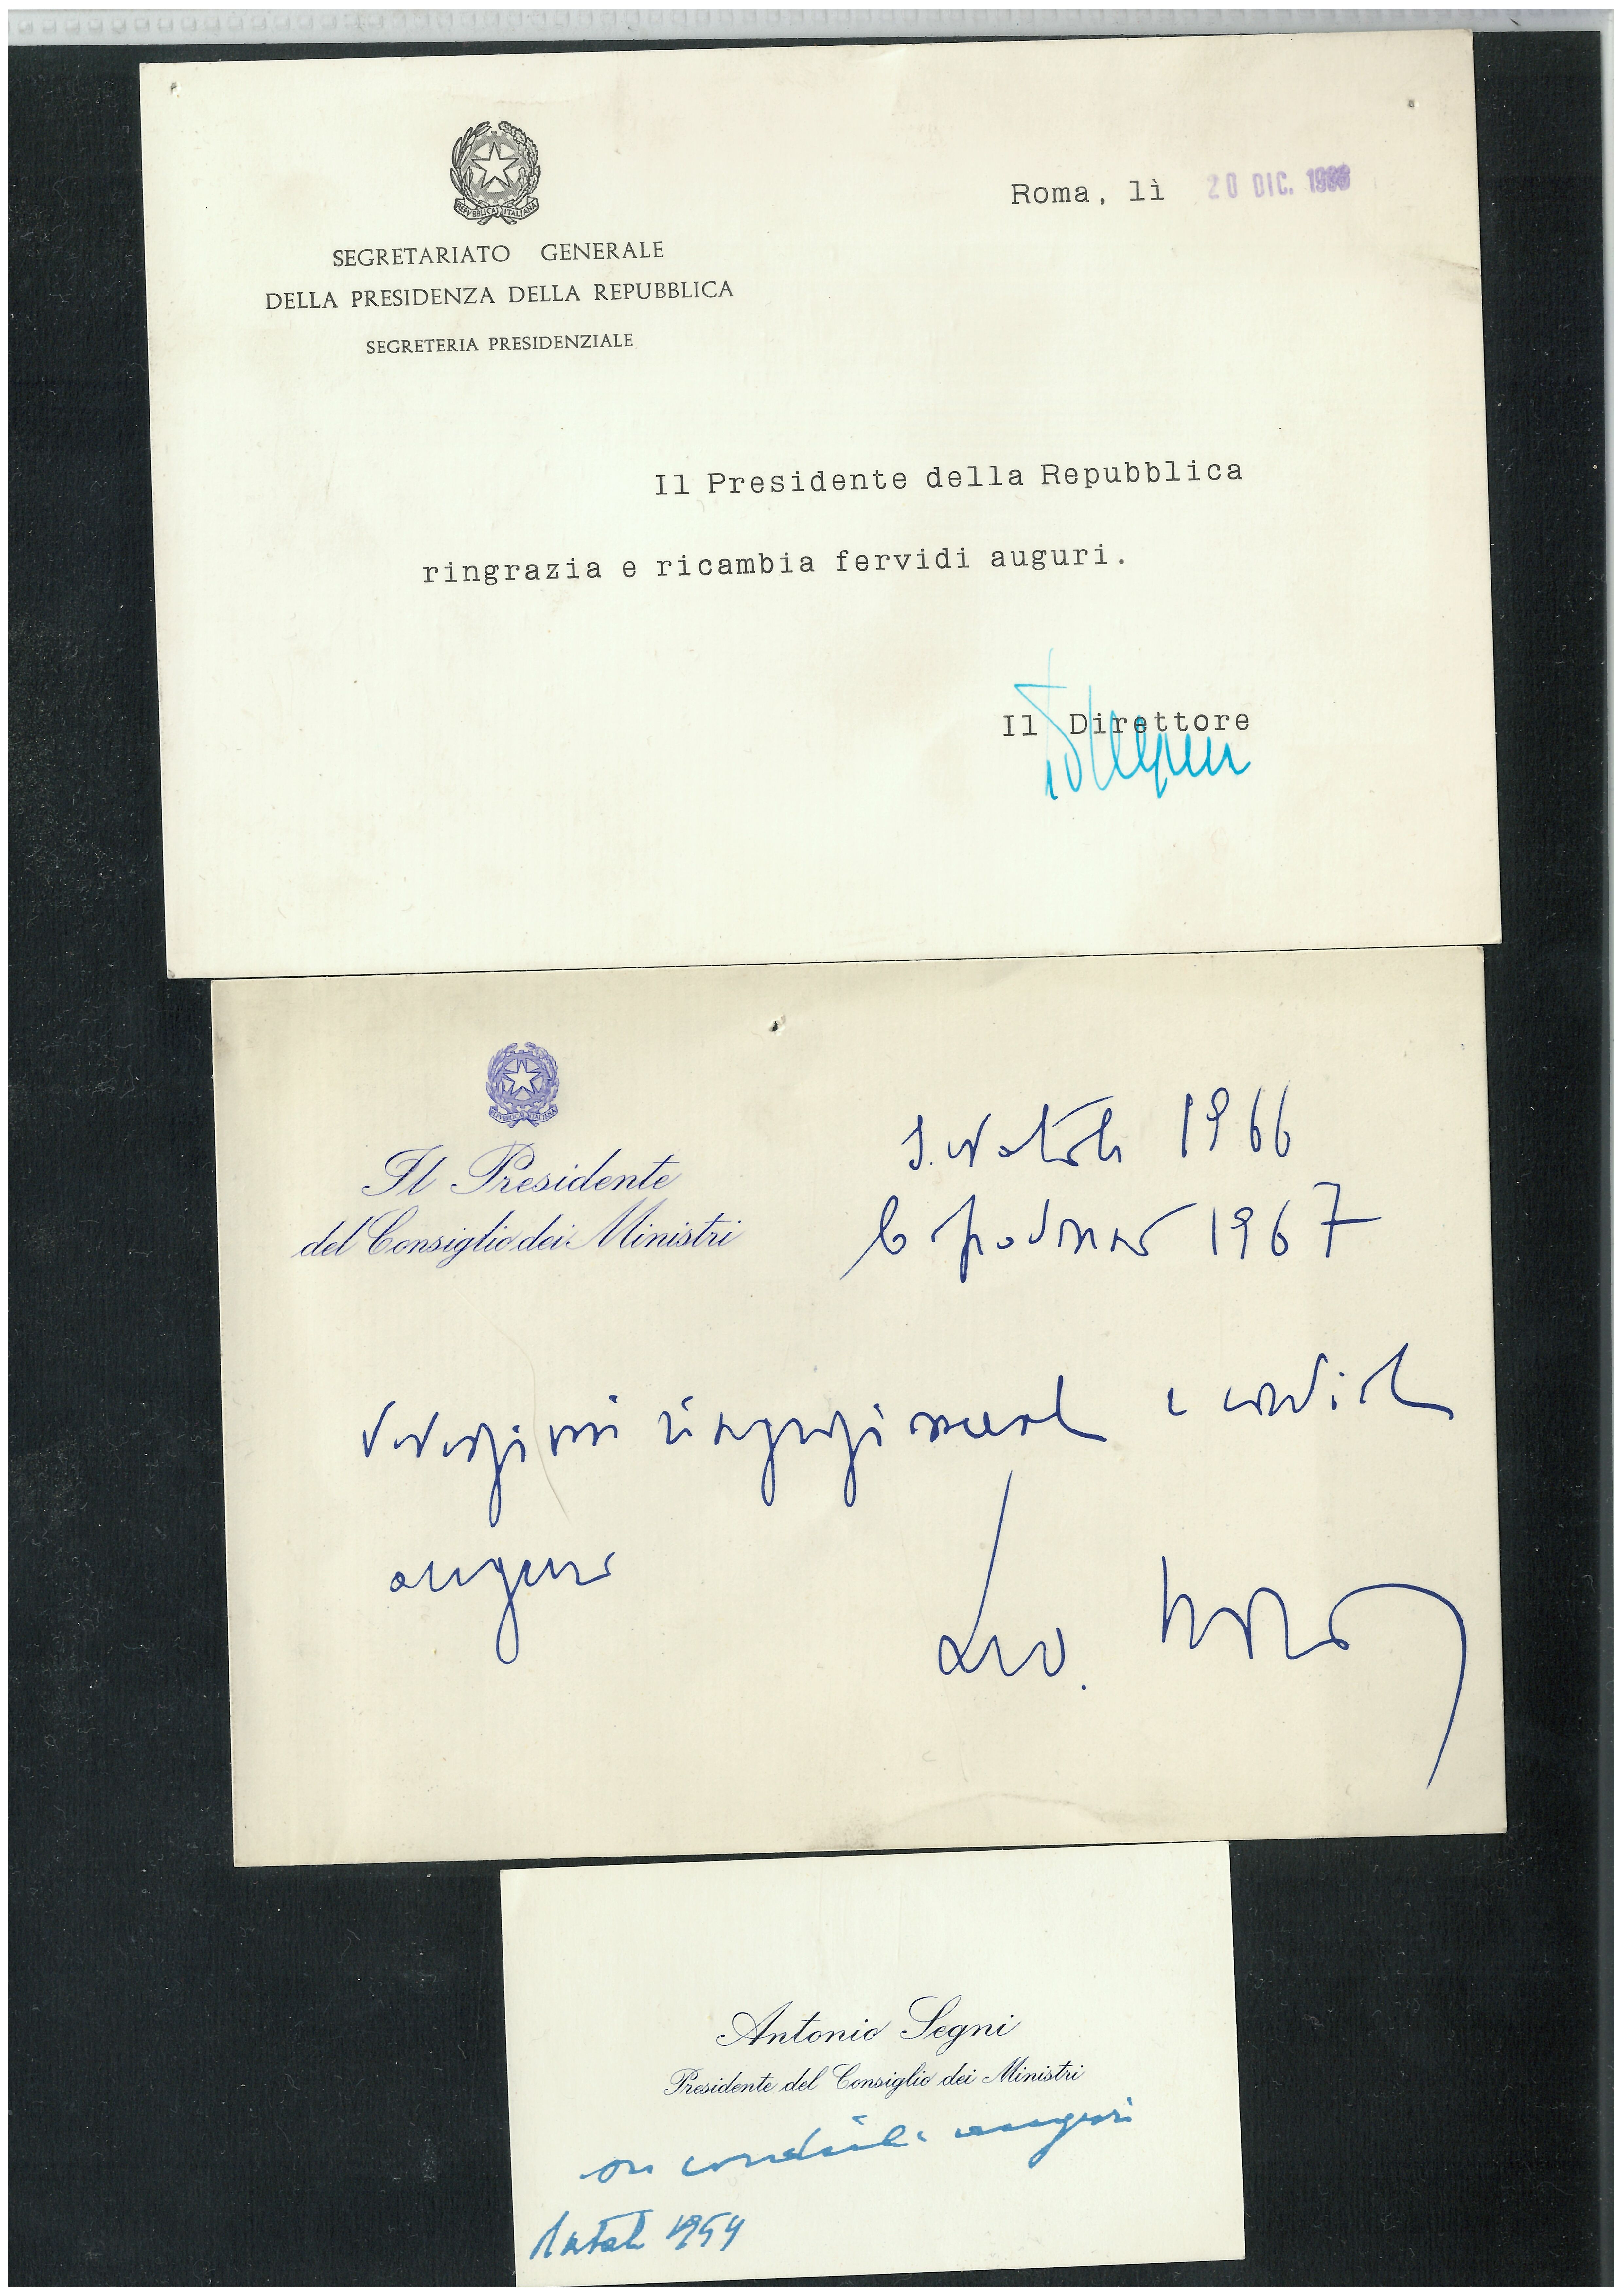 REPVBBLICA ITALIANA
SEGRETARIATO GENERALE
DELLA PRESIDENZA DELLA REPUBBLICA
SEGRETERIA PRESIDENZIALE
Roma, lì 20 DIC.
Il Presidente della Repubblica
ringrazia e ricambia fervidi auguri.
Il Direttore
REPVBBLICA ITALIANA
Il Presidente
del Consiglio dei Ministri
S. Natale 1966
Capodanno 1967
ringraziamenti e cordiali
auguri
Antonio Segni
Presidente del Consiglio dei Ministri
cordiali auguri
Natale 1959